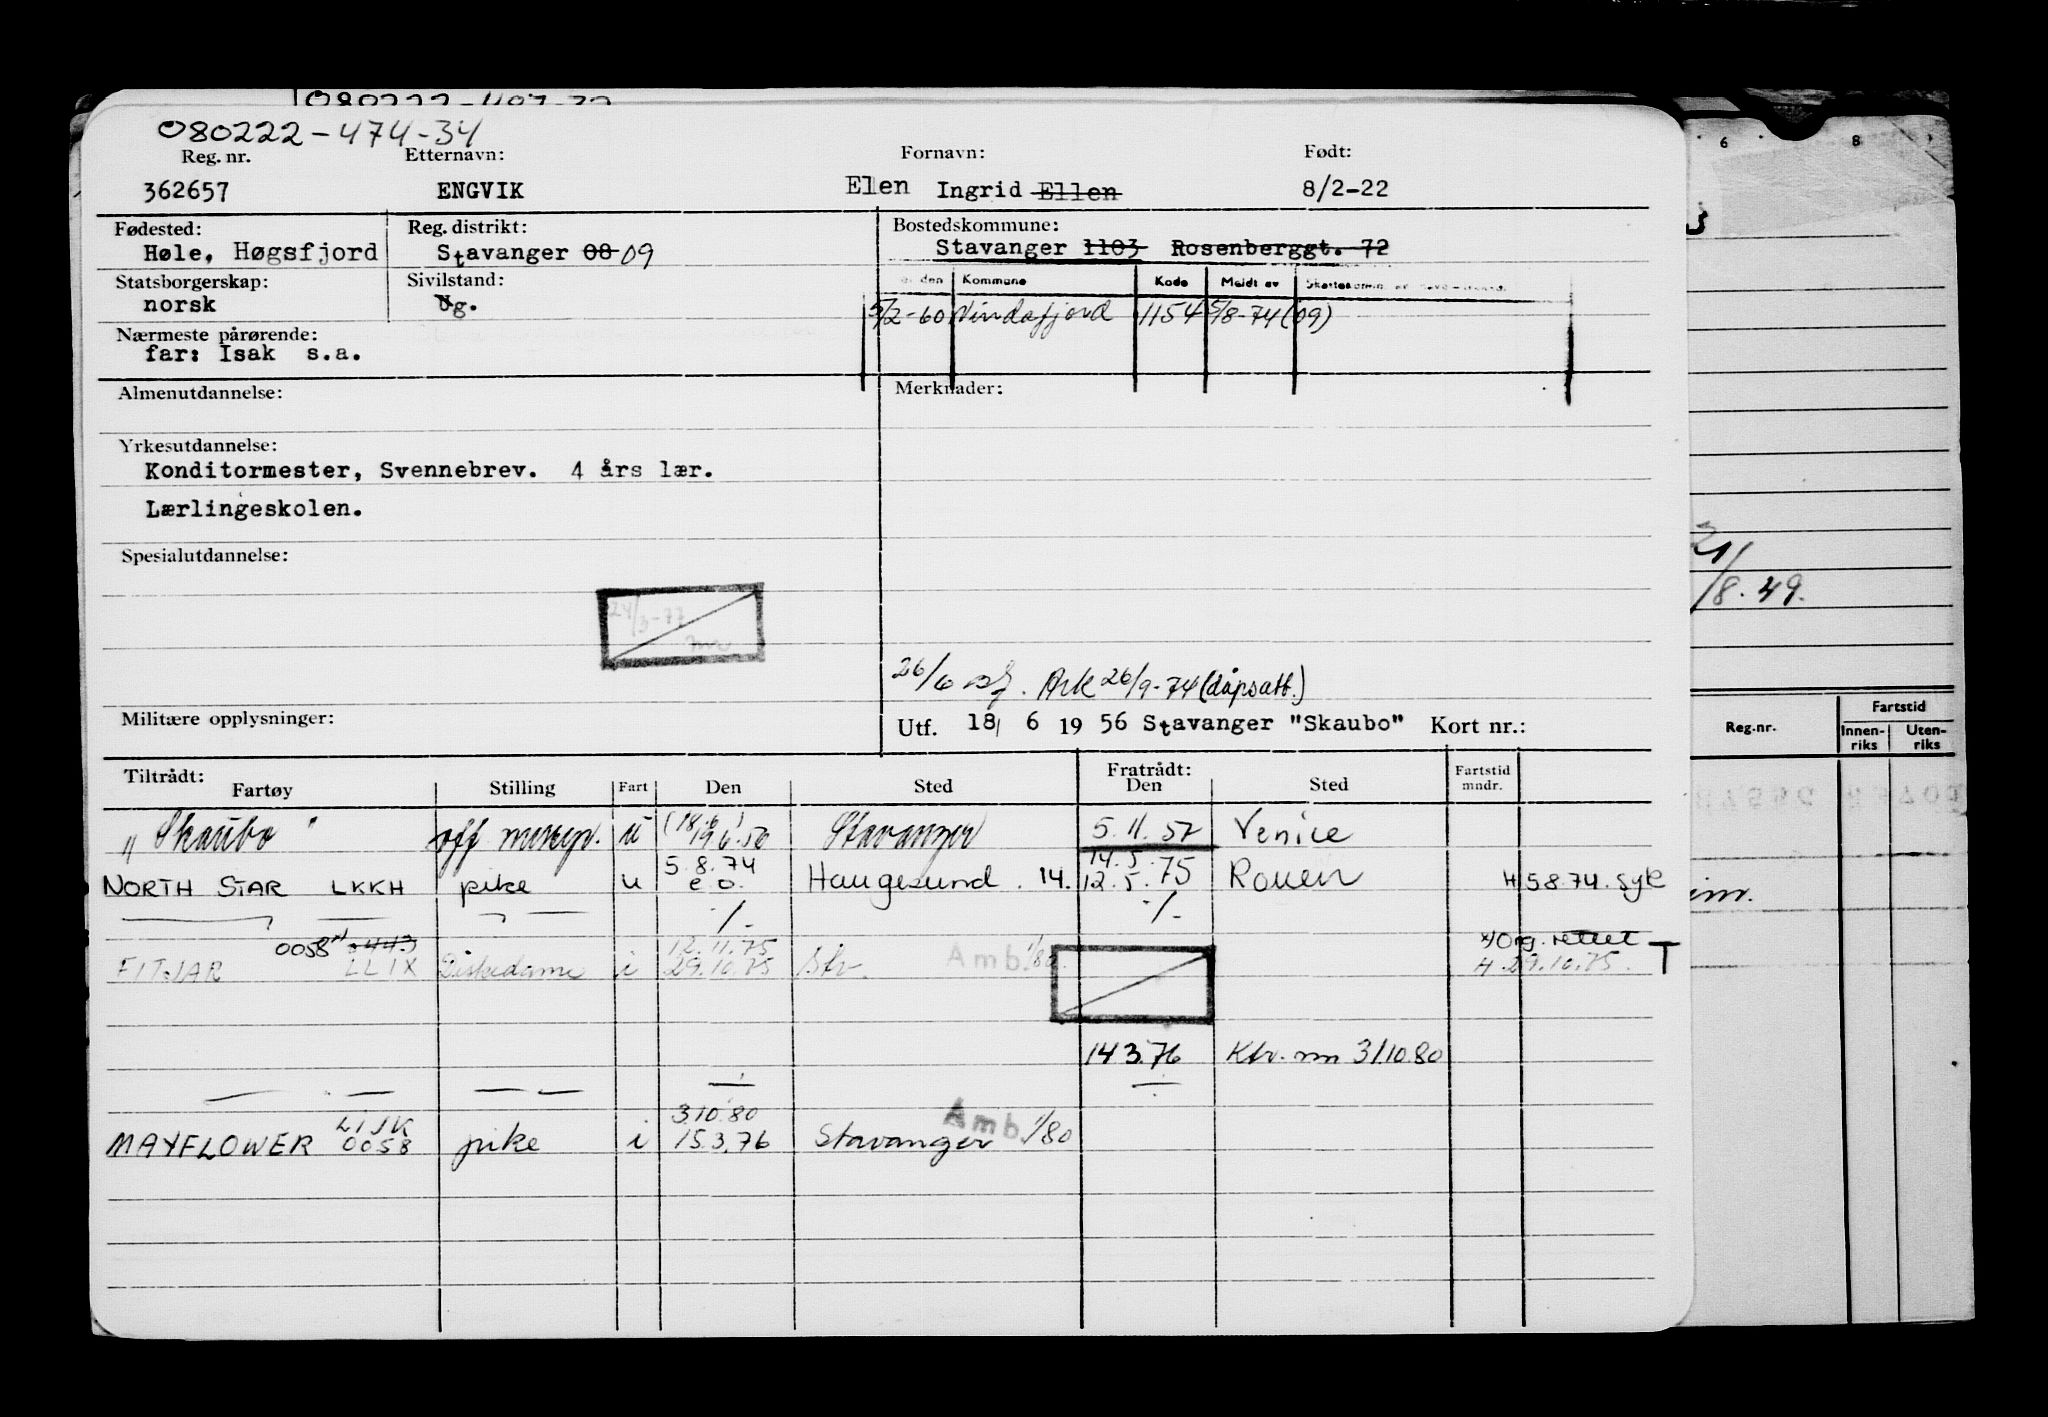 080222-474-34
Reg. nr. Etternavn: Fornavn: Født:
362657 ENGVIK Elen Ingrid Ellen 8/2-22
Fødested: Reg. distrikt: Bostedskommune:
Høle, Høgsfjord Stavanger 08 09 Stavanger 1103 Rosenberggt. 72
Statsborgerskap: Sivilstand: den Kommune Kode Meldt av
norsk Ug. 5/2-60 Vindafjord 1154 5/8-74 (09)
Nærmeste pårørende:
far: Isak s.a.
Almenutdannelse: Merknader:
Yrkesutdannelse:
Konditormester, Svennebrev. 4 års lær.
Lærlingeskolen.
Spesialutdannelse:
24/3-77
26/6 Ark 26/9-74 (dåpsatt.)
Militære opplysninger: Utf. 18/ 6 19 56 Stavanger "Skaubo" Kort nr.:
Tiltrådt: Fratrådt: Fartstid
Fartøy Stilling Fart Den Sted Den Sted mndr.
"Skaubo" off. u (18/6) 19.6.56 Stavanger 5.11.57 Venice
5.8.74 14.5.
NORTH STAR LKKH pike u e.o. Haugesund. 14. 12.5.75 Rouen H 5.8.74. syk
0058 0443 12.11.75 Amb. 1/80 Org. rettet T
FITJAR LLIX Diskedame i 29.10.75 Stv. H 29.10.75.
14 3.76 Ktr. nm 3/10.80
LIJK 3.10.80 Amb. 1/80
MAYFLOWER 0058 pike i 15.3.76 Stavanger
6 8
21/
/8. 49.
Reg.nr. Fartstid
Innen- Uten-
riks riks